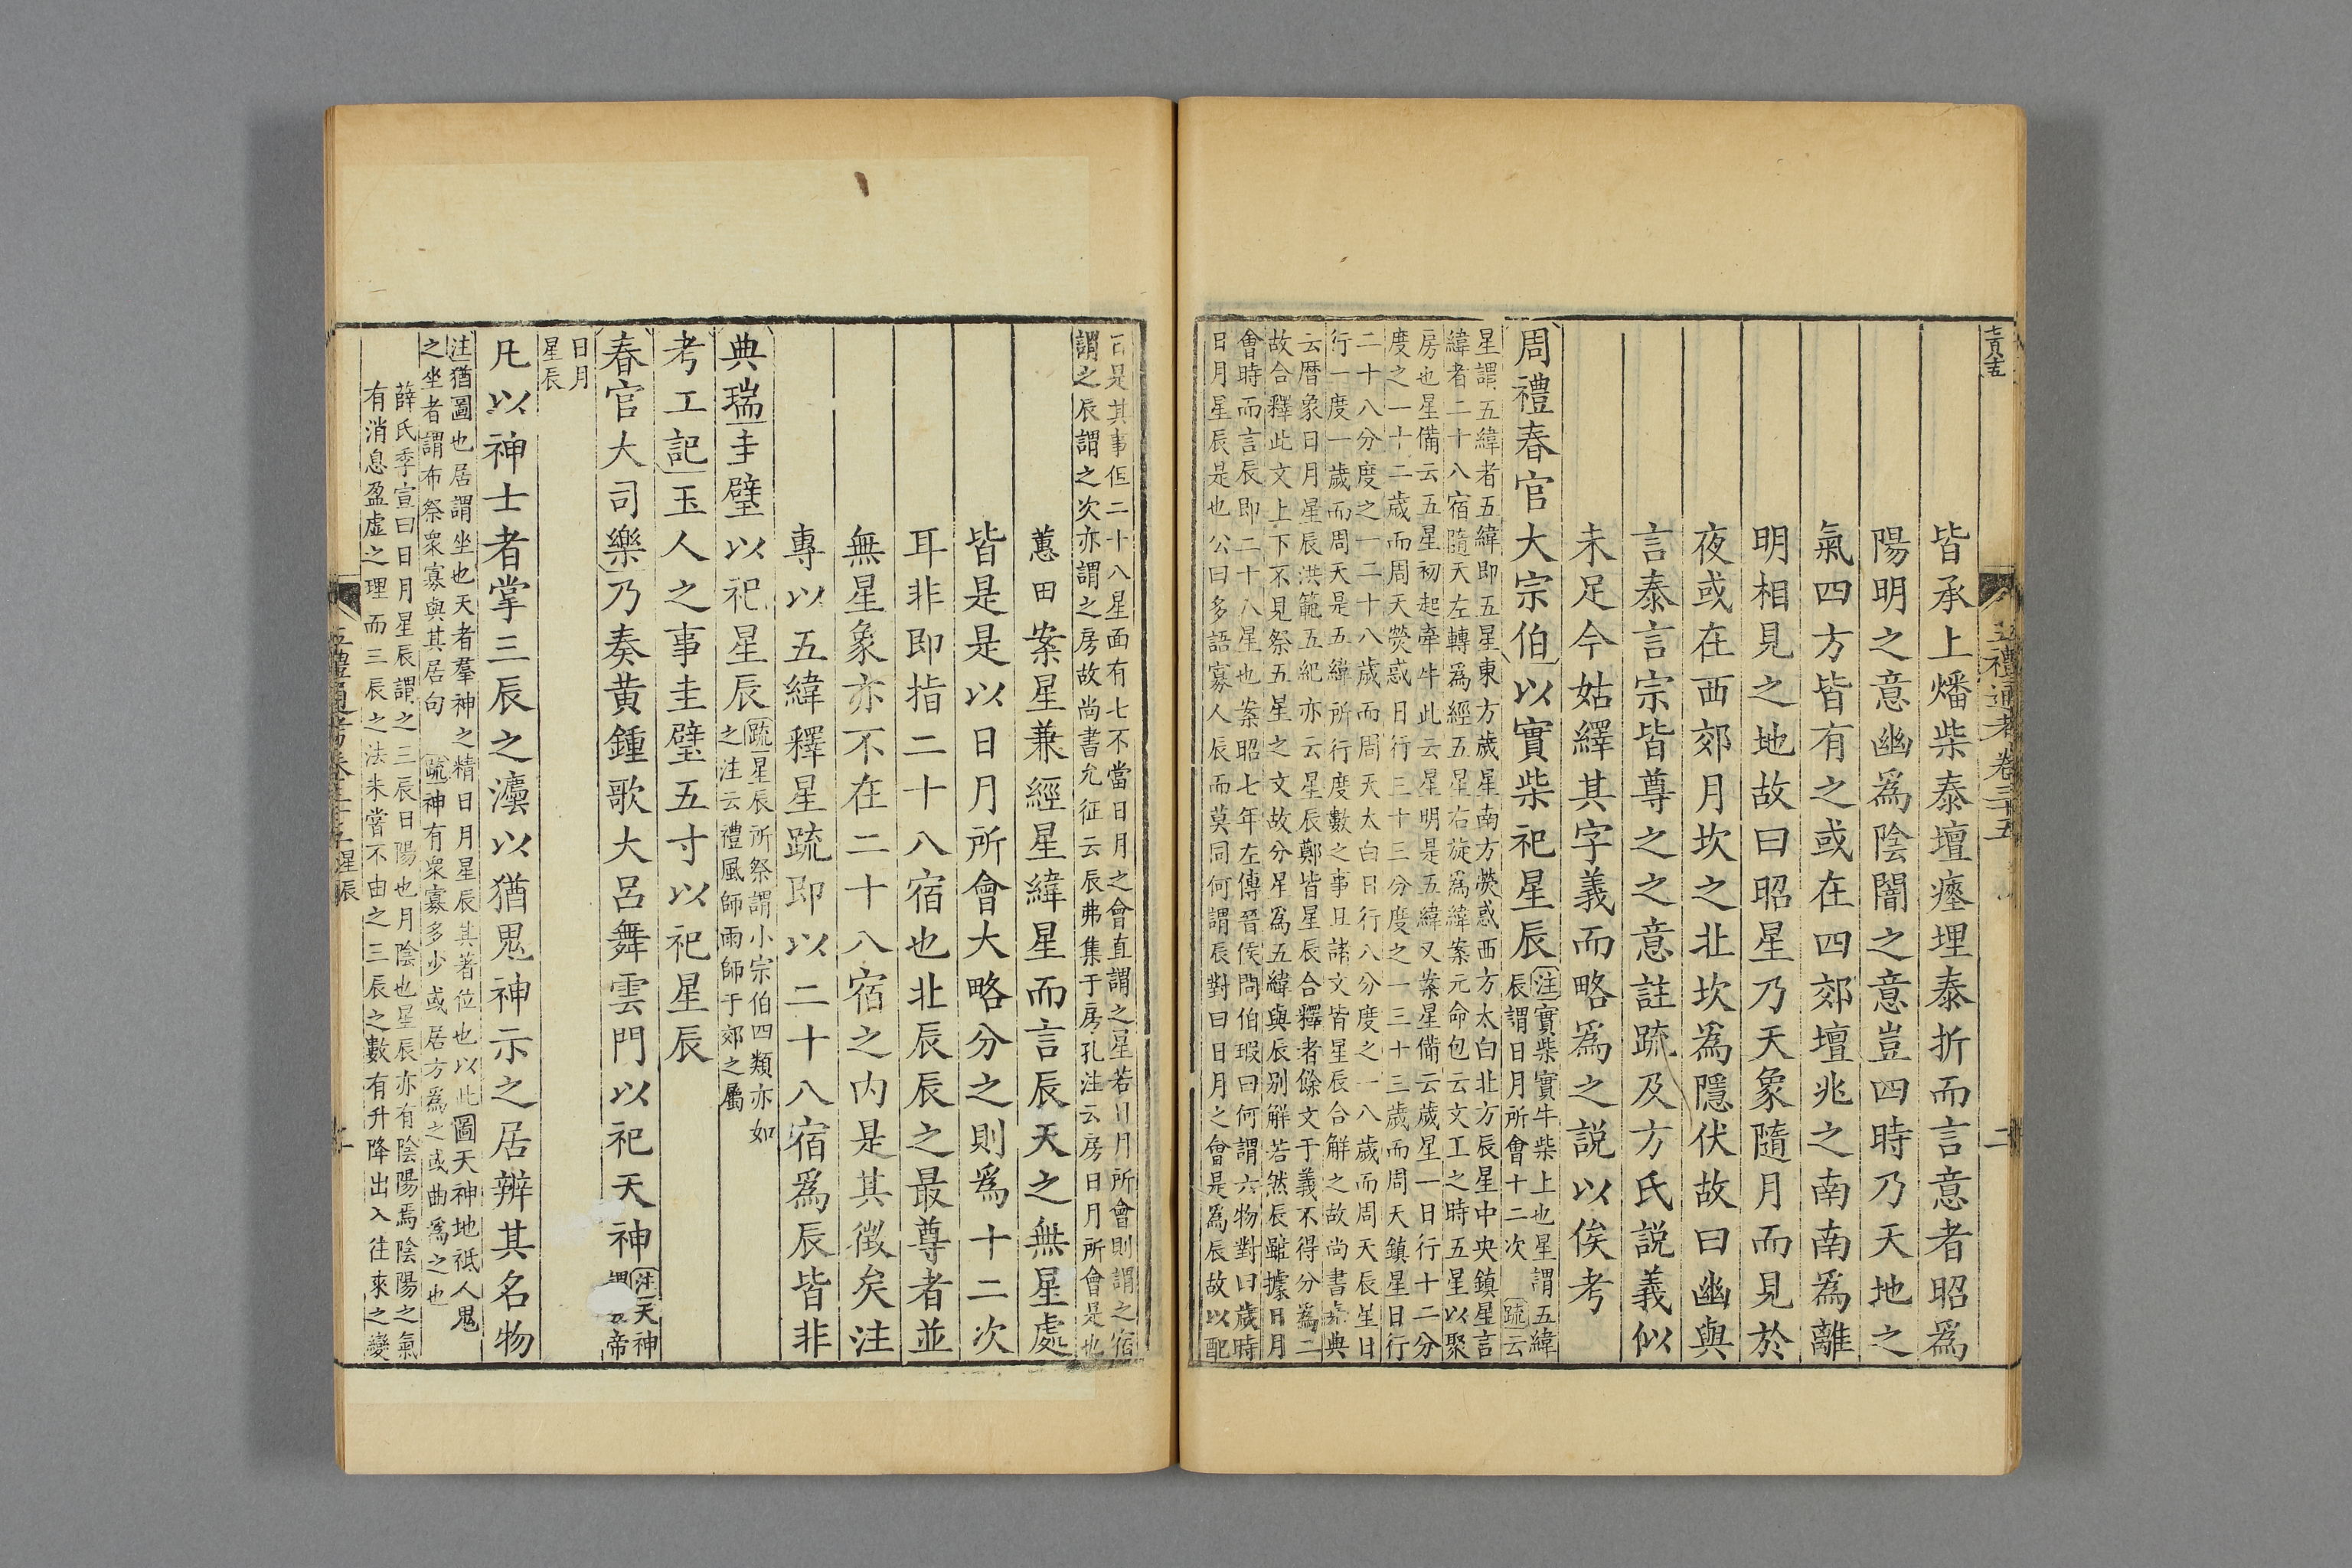 皆承上燔柴泰壇瘞埋泰折而言意者昭爲
陽明之意幽爲陰闇之意豈四時乃天地之
氣四方皆有之或在四郊壇兆之南南爲離
明相見之地故曰昭星乃天象隨月而見於
夜或在西郊月坎之北坎爲隱伏故曰幽與
言泰言宗皆尊之之意註疏及方氏説義似
未足今姑繹其字義而略爲之説以俟考
周禮春官大宗伯以實柴祀星辰
注實柴實牛柴上也星謂五緯
辰謂日月所會十二次 疏云
星謂五緯者五緯即五星東方歲星南方熒惑西方太白北方辰星中央鎮星言
緯者二十八宿隨天左轉爲經五星右旋爲緯案元命包云文工之時五星以聚
房也星備云五星初起牽牛此云星明是五緯又案星備云歲星一日行十二分
度之一十二歲而周天熒惑日行三十三分度之一三十三歲而周天鎮星日行
二十八分度之一二十八歲而周天太白日行八分度之一八歲而周天辰星日
行一度一歲而周天是五緯所行度數之事且諸文皆星辰合解之故尚書堯典
云曆象日月星辰洪範五紀亦云星辰鄭皆星辰合釋者餘文于義不得分爲二
故合釋此文上下不見祭五星之文故分星爲五緯與辰别解若然辰雖據日月
會時而言辰即二十八星也案昭七年左傳晉侯問伯瑕曰何謂六物對曰歲時
日月星辰是也公曰多語寡人辰而莫同何謂辰對曰日月之會是爲辰故以配
五禮通考卷三十五
二
日是其事但二十八星面有七不當日月之會直謂之星若日月所會則謂之宿
謂之辰謂之次亦謂之房故尚書允征云辰弗集于房孔注云房日月所會是也
蕙田案星兼經星緯星而言辰天之無星處
皆是是以日月所會大略分之則爲十二次
耳非即指二十八宿也北辰辰之最尊者並
無星象亦不在二十八宿之内是其徵矣注
專以五緯釋星疏即以二十八宿爲辰皆非
典瑞圭璧以祀星辰
疏星辰所祭謂小宗伯四類亦如
之注云禮風師雨師于郊之屬
考工記玉人之事圭璧五寸以祀星辰
春官大司樂乃奏黄鍾歌大吕舞雲門以祀天神
注天神
謂五帝
日月
星辰
凡以神士者掌三辰之灋以猶鬼神示之居辨其名物
注猶圖也居謂坐也天者羣神之精日月星辰其著位也以此圖天神地祇人鬼
之坐者謂布祭衆寡與其居句 疏神有衆寡多少或居方爲之或曲爲之也
薛氏季宣曰日月星辰謂之三辰日陽也月陰也星辰亦有陰陽焉陰陽之氣
有消息盈虛之理而三辰之法未嘗不由之三辰之數有升降出入往來之變
五禮通考卷三十五星辰